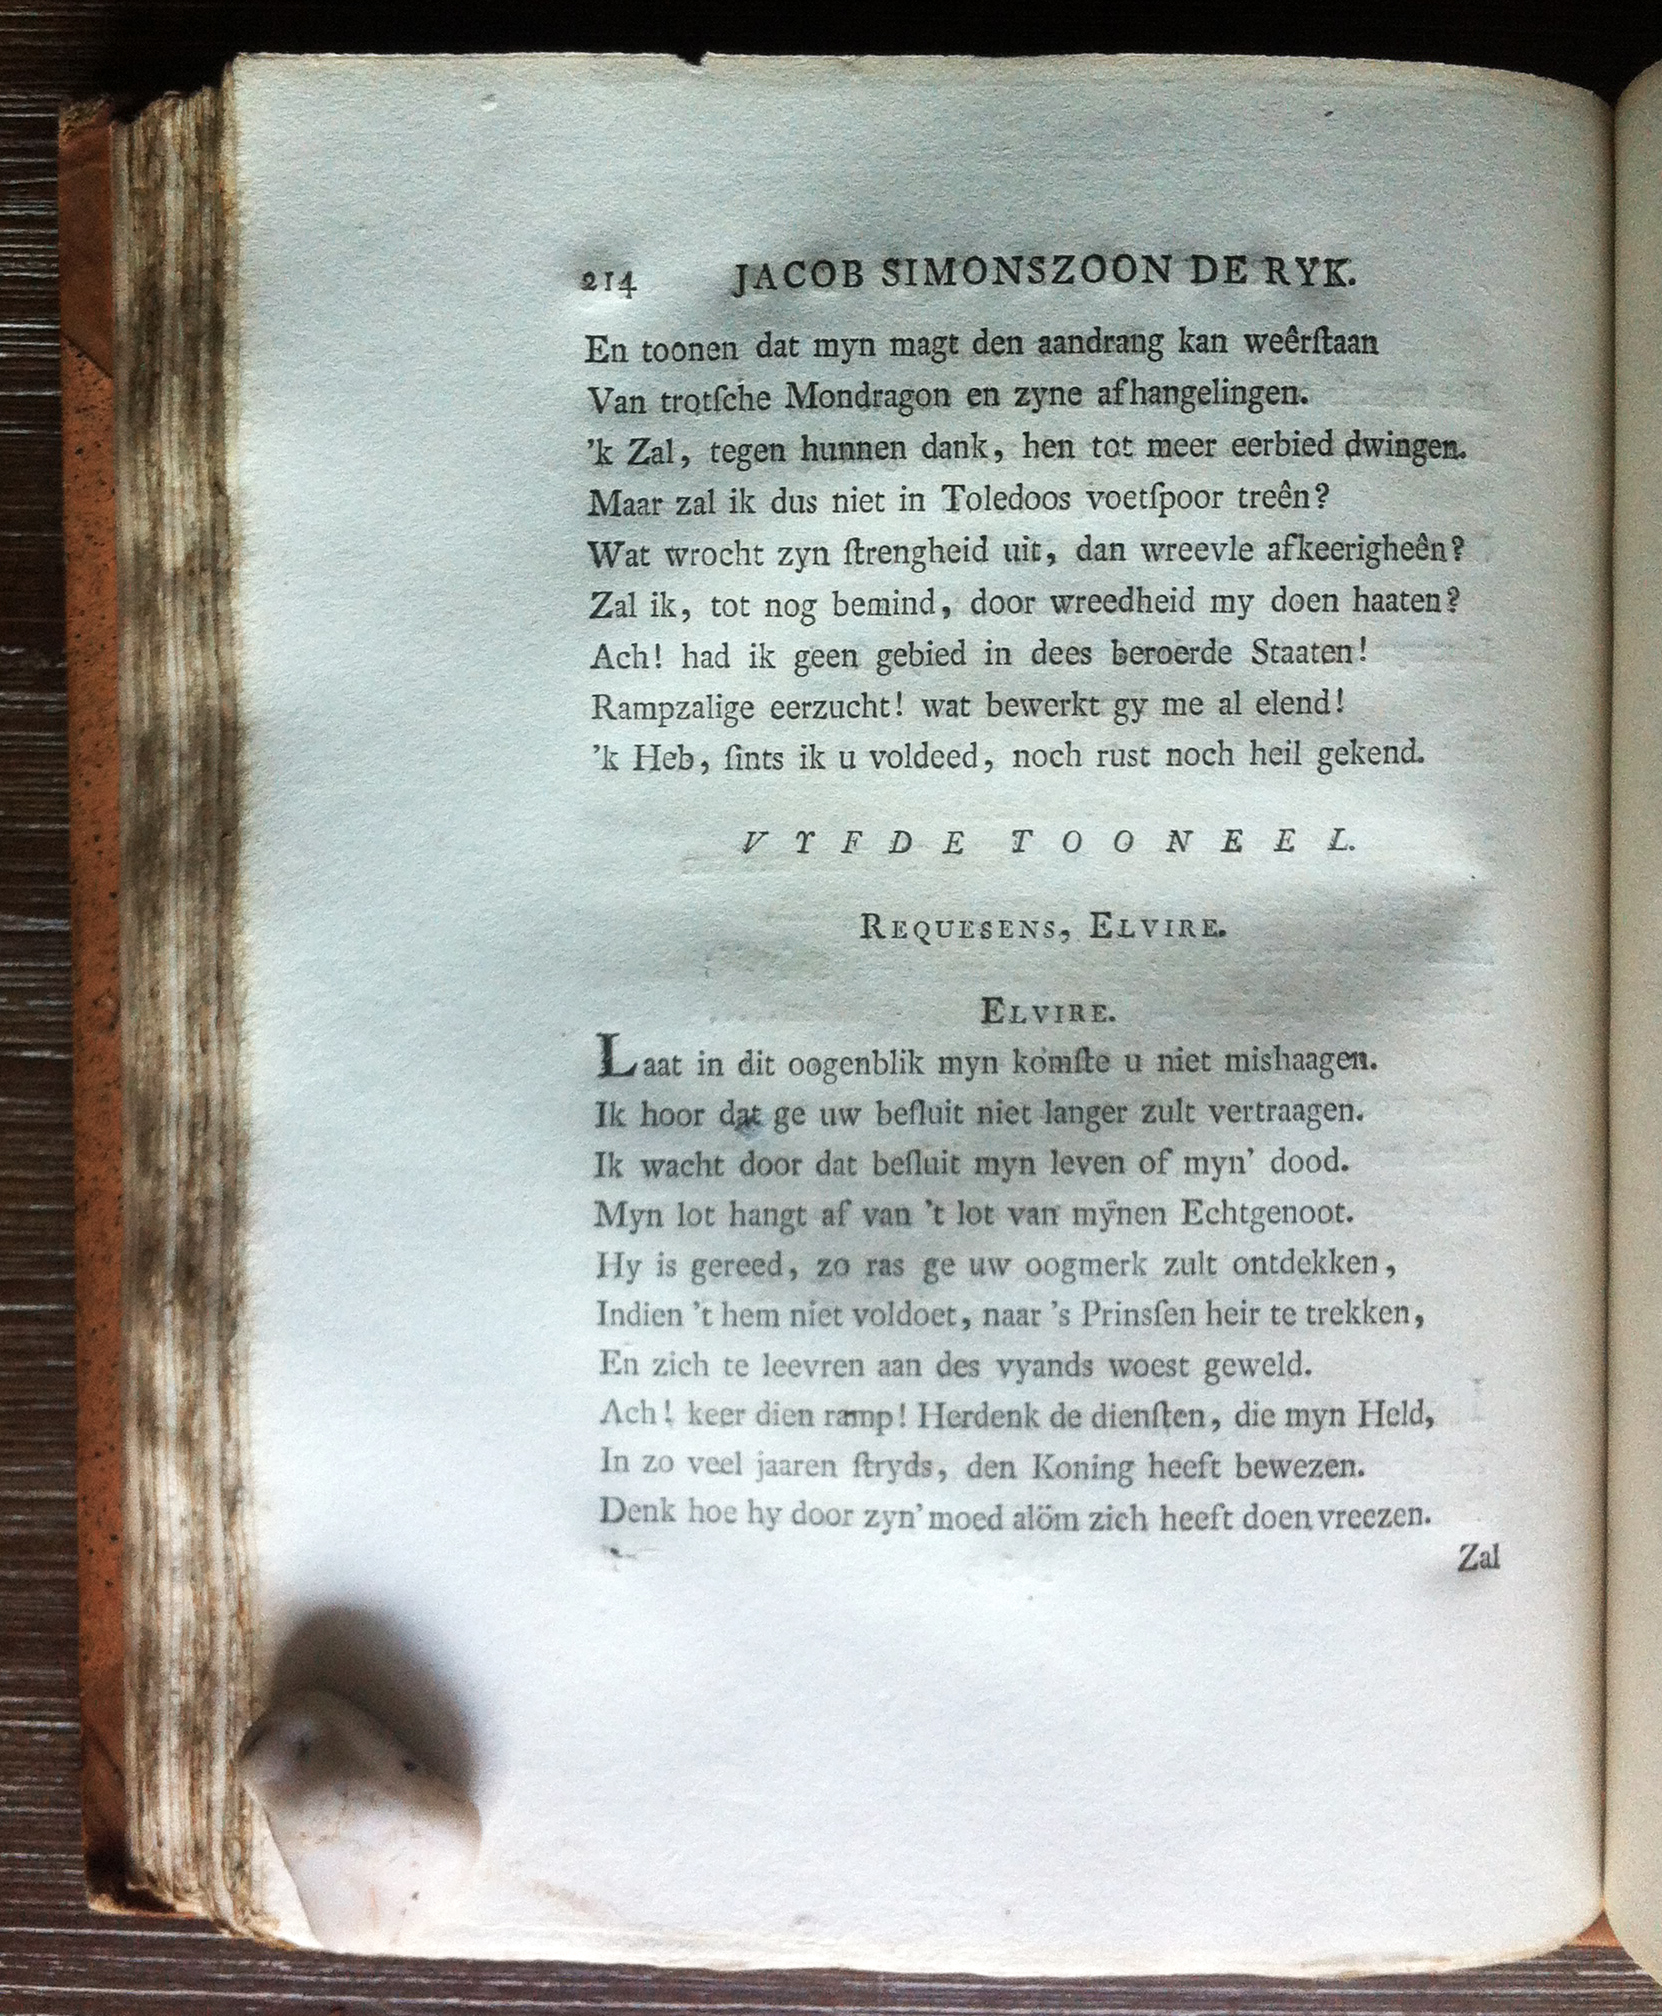 214 JACOB SIMONSZOON DE RYK.
En toonen dat myn magt den aandrang kan weêrſtaan
Van trotſche Mondragon en zyne afhangelingen.
’k Zal, tegen hunnen dank, hen tot meer eerbied dwingen.
Maar zal ik dus niet in Toledoos voetſpoor treên?
Wat wrocht zyn ſtrengheid uit, dan wreevle afkeerigheên?
Zal ik, tot nog bemind, door wreedheid my doen haaten?
Ach! had ik geen gebied in dees beroerde Staaten!
Rampzalige eerzucht! wat bewerkt gy me al elend!
’k Heb, ſints ik u voldeed, noch rust noch heil gekend.
VYFDE TOONEEL.
REQUESENS, ELVIRE.
ELVIRE.
Laat in dit oogenblik myn komſte u niet mishaagen.
Ik hoor dat ge uw beſluit niet langer zult vertraagen.
Ik wacht door dat beſluit myn leven of myn’ dood.
Myn lot hangt af van ’t lot van mynen Echtgenoot.
Hy is gereed, zo ras ge uw oogmerk zult ontdekken,
Indien ’t hem niet voldoet, naar ’s Prinsſen heir te trekken,
En zich te leevren aan des vyands woest geweld.
Ach! keer dien ramp! Herdenk de dienſten, die myn Held,
In zo veel jaaren ſtryds, den Koning heeft bewezen.
Denk hoe hy door zyn’ moed alöm zich heeft doen vreezen.
Zal